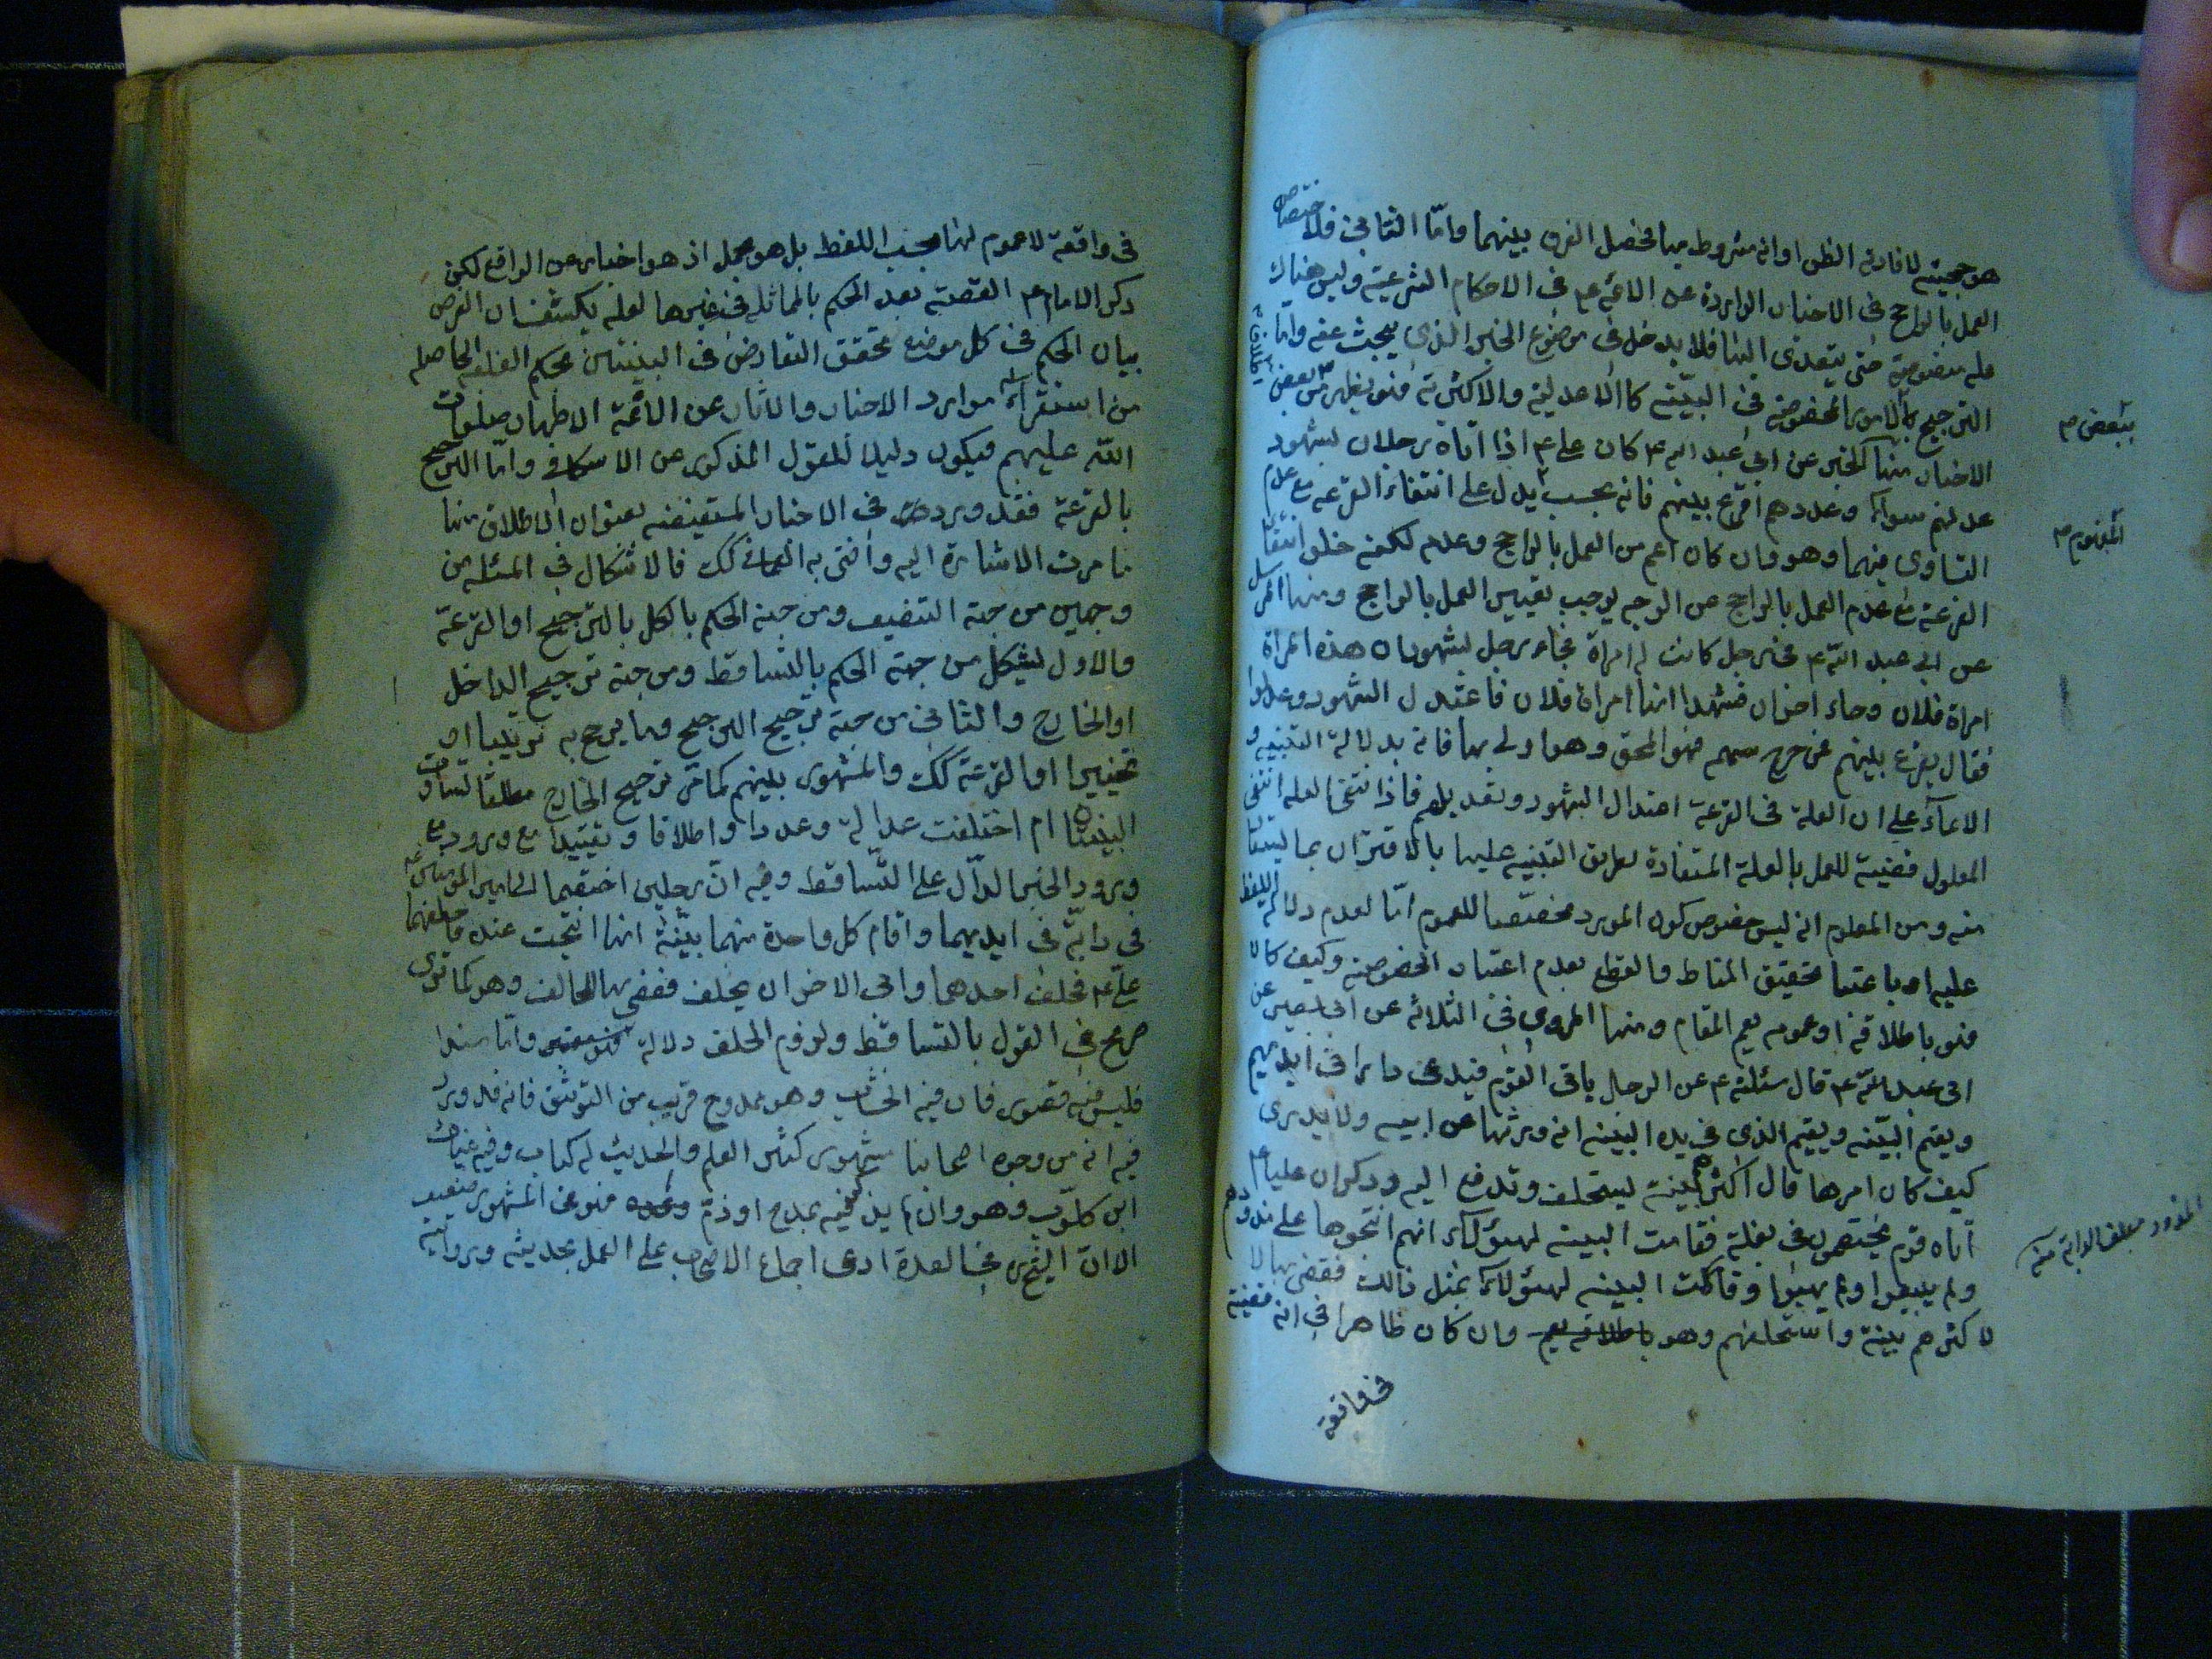 هو حجيته لافادته الظن او انه مشروط بها فحصل الفرق بينهما واما الثاني فلاختصاص
العمل بالراجح في الاخبار الواردة عن الائمة ع في الاحكام الشرعية وليس هناك
علة منصوصة حتى يتعدى الينا فلا يدخل في موضوع الخبر الذي يبحث عنه واما
الترجيح بالامور المخصوصة في البينة كالاعدلية والاكثرية فهو يظهر من بعض
الاخبار منها كالخبر عن ابي عبد الله ع كان علي ع اذا اتاه رجلان بشهود
عدلهم سواء وعددهم اقرع بينهم فانه بحسب يدل على انتفاء القرعة مع عدم
التساوي فيهما وهو وان كان اعم من العمل بالراجح وعدمه لكنه خلو انتفاء
القرعة مع عدم العمل بالراجح عن الوجه يوجب تعيين العمل بالراجح ومنها المرسل
عن ابي عبد الله ع في رجل كانت له امراة فجاء رجل بشهود ان هذه المراة
امراة فلان وجاء اخران فشهدا انها امراة فلان فاعتدل الشهود وعدلوا
فقال يقرع بينهم فمن خرج سهمه فهو المحق وهو اولى بها فانه بدلالة التنبيه و
الايماء على ان العلة في القرعة اعتدال الشهود وتعديلهم فاذا انتفى العلة انتفى
المعلول قضية للعمل بالعلة المستفادة بطريق التنبيه عليها بالاقتران بما
منه ومن المعلوم انه ليس خصوص كون المورد مخصصا للعموم اما لعدم دلالة اللفظ
عليه او باعتبار تحقيق المناط والقطع بعدم اعتبار الخصوصية وكيف كان
فهو باطلاقه او عمومه يعم المقام ومنها المروي في الثلاثة عن ابي بصير عن
ابي عبد الله ع قال سئلته ع عن الرجال ياتي القوم فيدعي دارا في ايديهم
ويقيم البينة ويقيم الذي في يده البينة انه ورثها عن ابيه ولا يدرى
كيف كان امرها قال اكثرهم بينة يستحلف وتدفع اليه وذكر ان عليا ع
اتاه قوم يختصمون في بغلة فقامت البينة لهؤلاء انهم انتجوها على مذودهم
ولم يبيعوا ولم يهبوا وقامت البينة لهؤلاء بمثل ذالك فقضى بها لا
لاكثرهم بينة واستحلفهم وهو باطلاقه يعم وان كان ظاهرا في انه قضية
في واقعة
ببعض م
المفهوم م
المذود معلف الدابة منه
في واقعة لا عموم لها بحسب اللفظ بل هو مجمل اذ هو اخبار عن الواقع لكن
ذكر الامام ع القصة بعد الحكم بالمماثل في غيرها لعله يكشف ان الغرض
بيان الحكم في كل موضع تحقق التعارض في البينتين بحكم الغلبة الحاصلة
من استقراء موارد الاخبار والاثار عن الائمة الاطهار صلوات
الله عليهم فيكون دليلا للقول المذكور عن الاسكافي واما الترجيح
بالقرعة فقد ورد في الاخبار المستفيضة بعنوان الاطلاق منها
ما مرت الاشارة اليه وافتى به العماني كك فالاشكال في المسئلة من
وجهين من جهة التنصيف ومن جهة الحكم بالكل بالترجيح او القرعة
والاول يشكل من جهة الحكم بالتساقط ومن جهة ترجيح الداخل
او الخارج والثاني من جهة ترجيح الترجيح وما يرجح به ترتيبا او
تخييرا او القرعة كك والمشهور بينهم كما مر ترجيح الخارج مطلقا تساوت
البينتان ام اختلفت عدالة وعددا واطلاقا وتقييدا مع ورود مع
ورود الخبر الدال على التساقط وفيه ان رجلين اختصما الى امير المؤمنين ع
في دابة في ايديهما واقام كل واحدة منهما بينة انها انتجت عنده فاحلفهما
علي ع فحلف احدهما وابى الاخر ان يحلف فقضى بها للحالف وهو كما ترى
صريح في القول بالتساقط ولزوم الحلف دلالة واما سندا
فليس فيه قصور فان فيه الخشاب وهو ممدوح قريب من التوثيق فانه قد ورد
فيه انه من وجوه اصحابنا مشهور كثير العلم والحديث له كتاب وفيه غياث
ابن كلوب وهو وان لم يذكر فيه بمدح او ذم وغيره فهو عن المشهور ضعيف
الا ان الشيخ في العدة ادعى اجماع الاصحاب على العمل بحديثه وروايته